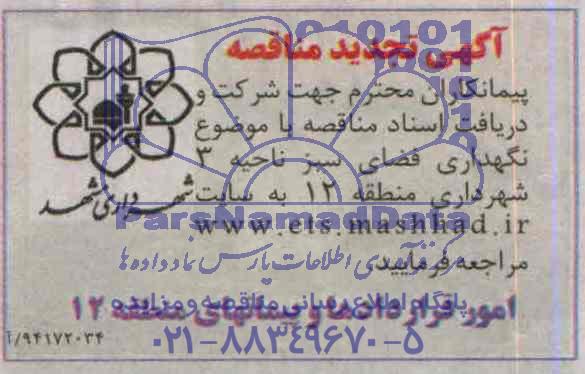 آگهی تجدید مناقصه
پیمانکاران محترم جهت شرکت و
دریافت اسناد مناقصه با موضوع
نگهداری فضای سبز ناحیه ۳
شهرداری منطقه ۱۲ به سایت
www.ets.mashhad.ir
مراجعه فرمایید.
امور قراردادها و پیمانهای منطقه ۱۲
شهرداری مشهد
۹۴۱۷۲۰۳۴/آ
ParsNamadData
مرکز فرآوری اطلاعات پارس نماد داده ها
پایگاه اطلاع رسانی مناقصه و مزایده
۰۲۱-۸۸۳۴۹۶۷۰-۵